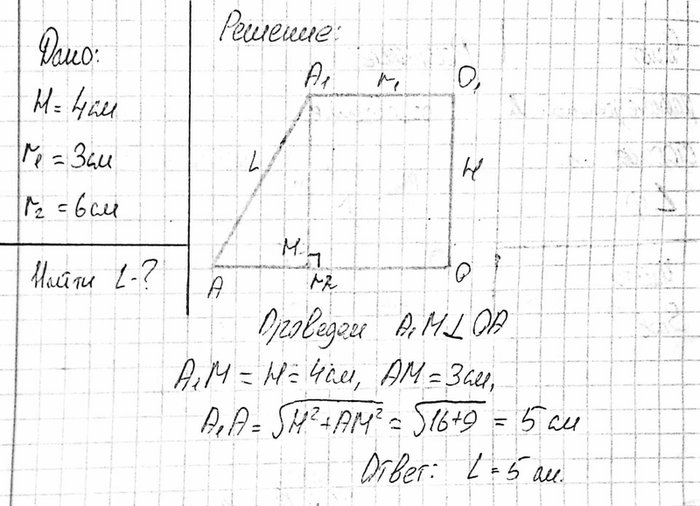 Дано:
H = 4 см
r₁ = 3 см
r₂ = 6 см
Найти L - ?
Решение:
A₁ r₁ O₁
L H
M
A r₂ O
Проведем A₁M ⊥ OA
A₁M = H = 4 см, AM = 3 см,
A₁A = √H² + AM² = √16+9 = 5 см
Ответ: L = 5 см.